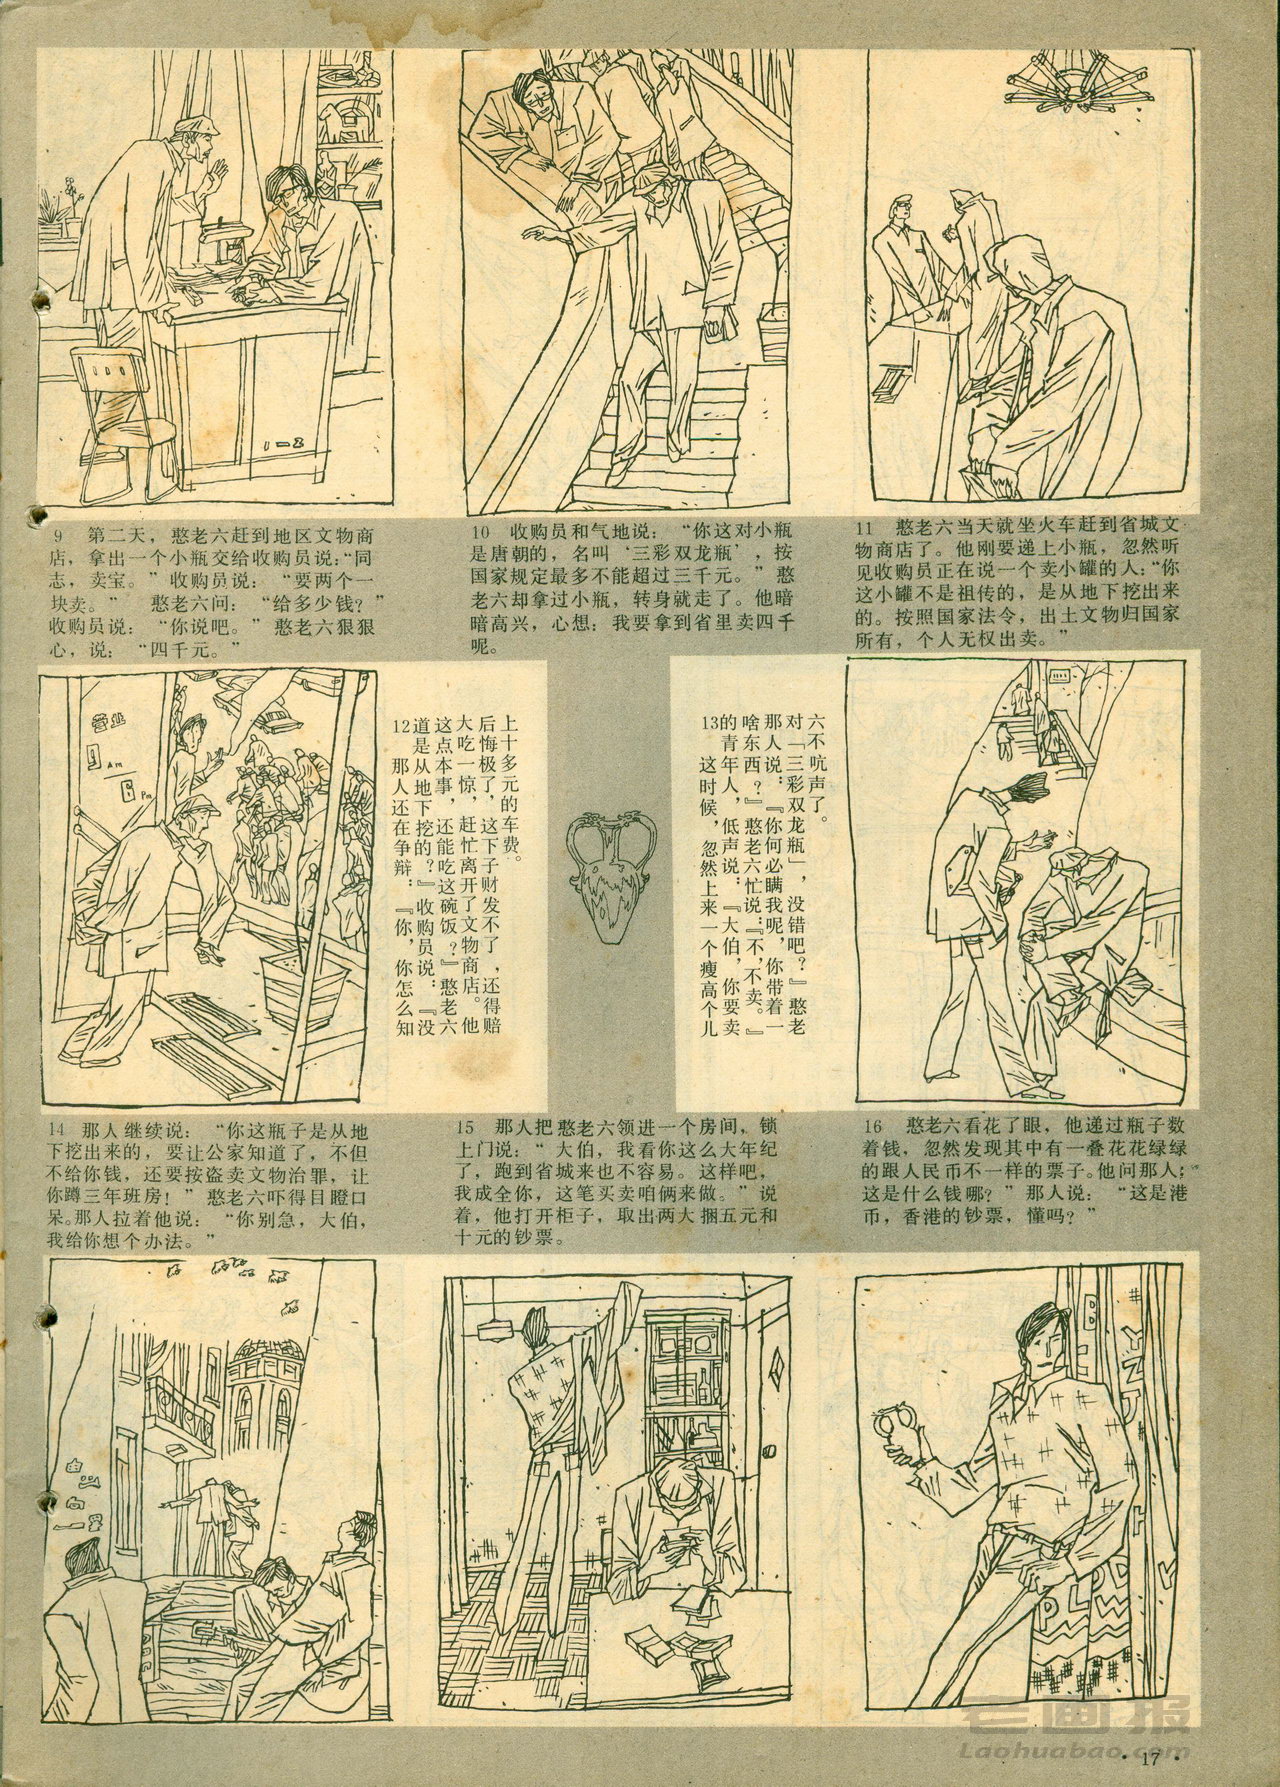 9　第二天，憨老六赶到地区文物商
店，拿出一个小瓶交给收购员说：“同
志，卖宝。”收购员说：“要两个一
块卖。”　憨老六问：“给多少钱？”
收购员说：“你说吧。”憨老六狠狠
心，说：“四千元。”
10　收购员和气地说：“你这对小瓶
是唐朝的，名叫‘三彩双龙瓶’，按
国家规定最多不能超过三千元。”憨
老六却拿过小瓶，转身就走了。他暗
暗高兴，心想：我要拿到省里卖四千
呢。
11　憨老六当天就坐火车赶到省城文
物商店了。他刚要递上小瓶，忽然听
见收购员正在说一个卖小罐的人：“你
这小罐不是祖传的，是从地下挖出来
的。按照国家法令，出土文物归国家
所有，个人无权出卖。”
营业
9 Am
6 Pm
12　那人还在争辩：『你，你怎么知
道是从地下挖的？』收购员说：『没
这点本事，还能吃这碗饭？』憨老六
大吃一惊，赶忙离开了文物商店。他
后悔极了，这下子财发不了，还得赔
上十多元的车费。
13　这时候，忽然上来一个瘦高个儿
的青年人，低声说：『大伯，你要卖
啥东西？』憨老六忙说：『不，不卖。』
那人说：『你何必瞒我呢，你带着一
对「三彩双龙瓶」，没错吧？』憨老
六不吭声了。
14　那人继续说：“你这瓶子是从地
下挖出来的，要让公家知道了，不但
不给你钱，还要按盗卖文物治罪，让
你蹲三年班房！”憨老六吓得目瞪口
呆。那人拉着他说：“你别急，大伯，
我给你想个办法。”
15　那人把憨老六领进一个房间，锁
上门说：“大伯，我看你这么大年纪
了，跑到省城来也不容易。这样吧，
我成全你，这笔买卖咱俩来做。”说
着，他打开柜子，取出两大捆五元和
十元的钞票。
16　憨老六看花了眼，他递过瓶子数
着钱，忽然发现其中有一叠花花绿绿
的跟人民币不一样的票子。他问那人：
这是什么钱哪？”那人说：“这是港
币，香港的钞票，懂吗？”
老画报
Laohuabao.com
·17·